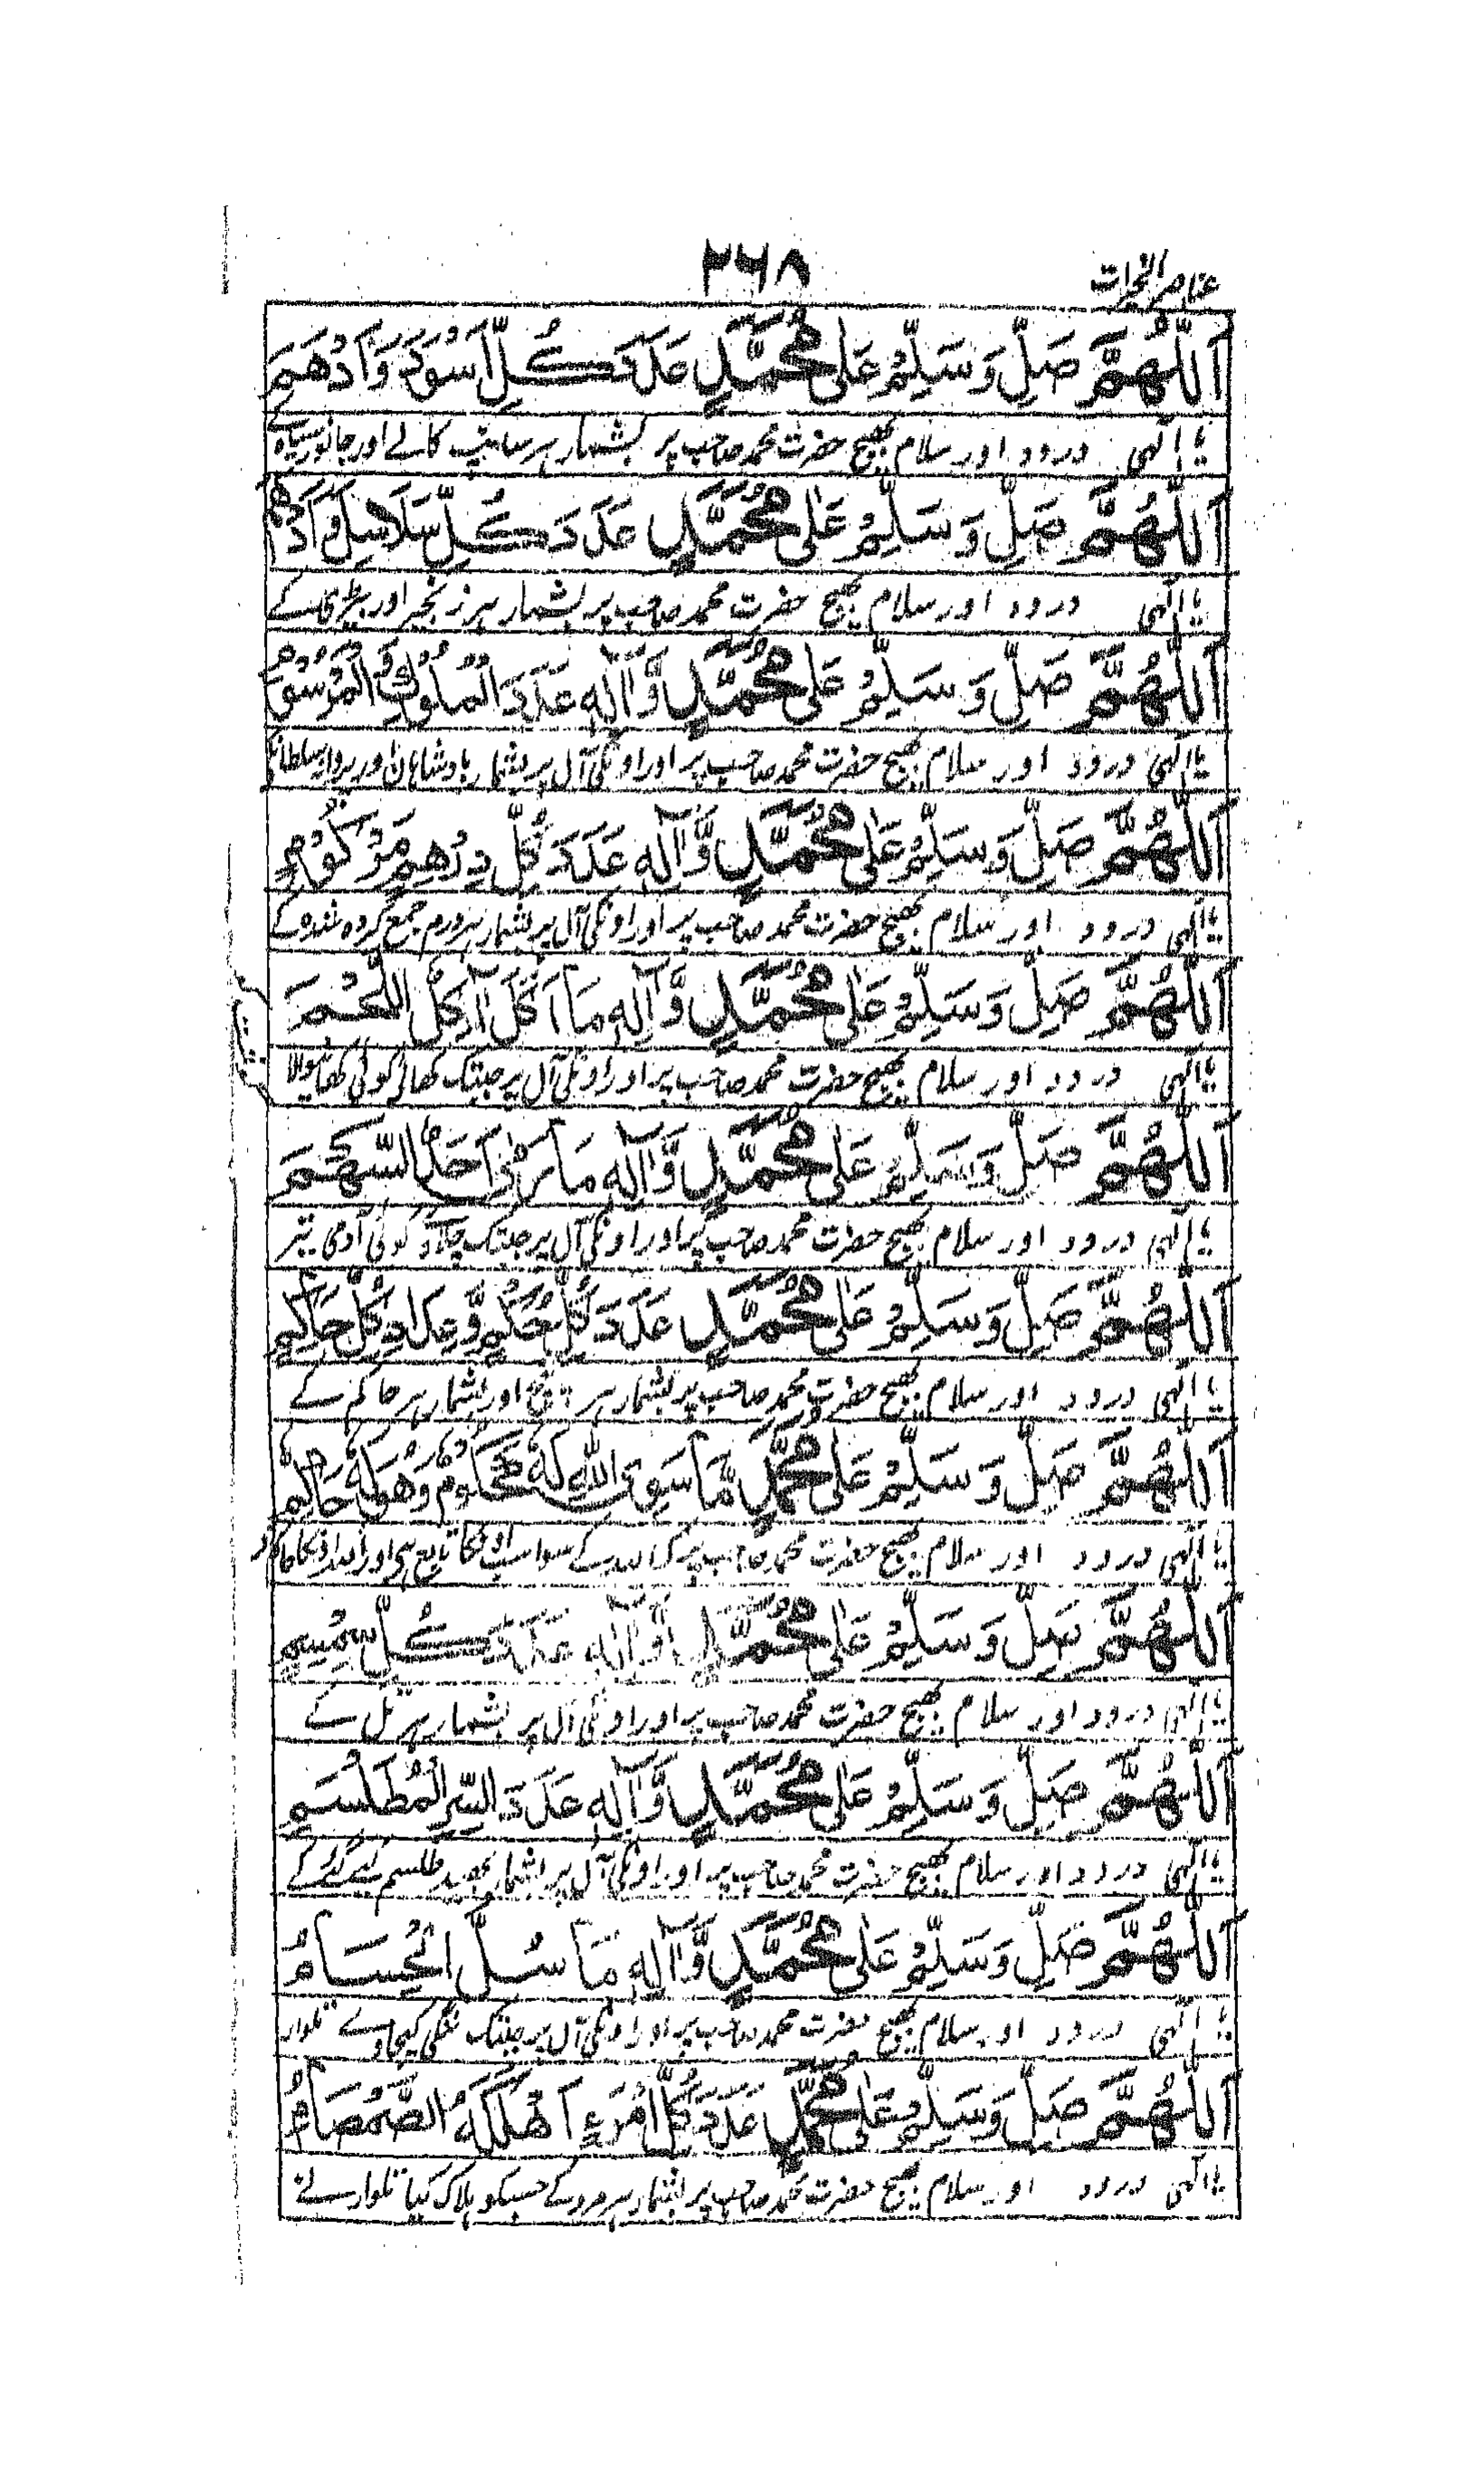 عناصر الخیرات
۲۶۸
اَللّٰهُمَّ صَلِّ وَسَلِّمْ عَلٰى مُحَمَّدٍ عَدَدَ كُلِّ اَسْوَدَ وَاَدْهَمَ
یا الٰہی درود اور سلام بھیج حضرت محمد صاحب پر بشمار ہر سانپ کالے اور جانور سیاہ کے
اَللّٰهُمَّ صَلِّ وَسَلِّمْ عَلٰى مُحَمَّدٍ عَدَدَ كُلِّ سَلَاسِلَ وَاَدْهَمَ
یا الٰہی درود اور سلام بھیج حضرت محمد صاحب پر بشمار ہر زنجیر اور بیڑی کے
اَللّٰهُمَّ صَلِّ وَسَلِّمْ عَلٰى مُحَمَّدٍ وَّاٰلِهٖ عَدَدَ الْمُلُوْكِ وَ
یا الٰہی درود اور سلام بھیج حضرت محمد صاحب پر اور اونکی آل پر بشمار بادشاہان اور
اَللّٰهُمَّ صَلِّ وَسَلِّمْ عَلٰى مُحَمَّدٍ وَّاٰلِهٖ عَدَدَ كُلِّ دِرْهَمٍ مَرْكُوْمٍ
یا الٰہی درود اور سلام بھیج حضرت محمد صاحب پر اور اونکی آل پر بشمار ہر درم جمع کردہ شدہ کے
اَللّٰهُمَّ صَلِّ وَسَلِّمْ عَلٰى مُحَمَّدٍ وَّاٰلِهٖ مَا اَكَلَ اٰكِلُ اللَّحْمَ
یا الٰہی درود اور سلام بھیج حضرت محمد صاحب پر اور اونکی آل پر جبتک کھائے کوئی کھانیوالا
اَللّٰهُمَّ صَلِّ وَسَلِّمْ عَلٰى مُحَمَّدٍ وَّاٰلِهٖ مَا رَمٰى اَحَدٌ السَّهْمَ
یا الٰہی درود اور سلام بھیج حضرت محمد صاحب پر اور اونکی آل پر جبتک چلاوے کوئی آدمی تیر
اَللّٰهُمَّ صَلِّ وَسَلِّمْ عَلٰى مُحَمَّدٍ عَدَدَ كُلِّ حُكْمٍ وَّعِدَادَ كُلِّ حَاكِمٍ
یا الٰہی درود اور سلام بھیج حضرت محمد صاحب پر بشمار ہر پنچ اور بشمار ہر حاکم کے
اَللّٰهُمَّ صَلِّ وَسَلِّمْ عَلٰى مُحَمَّدٍ مَّا سِوَى اللّٰهِ لَهٗ مَحْكُوْمٌ وَهُوَ لَهٗ حَاكِمٌ
یا الٰہی درود اور سلام بھیج حضرت محمد صاحب پر کہ اللہ کے سوا سب اونکا تابع ہی اور اللہ اونکا حاکم
اَللّٰهُمَّ صَلِّ وَسَلِّمْ عَلٰى مُحَمَّدٍ وَّاٰلِهٖ عَدَدَ كُلِّ سِمْسِمٍ
یا الٰہی درود اور سلام بھیج حضرت محمد صاحب پر اور اونکی آل پر بشمار ہر تل کے
اَللّٰهُمَّ صَلِّ وَسَلِّمْ عَلٰى مُحَمَّدٍ وَّاٰلِهٖ عَدَدَ السِّرِّ الْمُطَلْسَمِ
یا الٰہی درود اور سلام بھیج حضرت محمد صاحب پر اور اونکی آل پر بشمار بھید طلسم کئے گئے کے
اَللّٰهُمَّ صَلِّ وَسَلِّمْ عَلٰى مُحَمَّدٍ وَّاٰلِهٖ مَا سُلَّ الْحُسَامُ
یا الٰہی درود اور سلام بھیج حضرت محمد صاحب پر اور اونکی آل پر جبتک ننگی کیجاوے تلوار
اَللّٰهُمَّ صَلِّ وَسَلِّمْ عَلٰى مُحَمَّدٍ عَدَدَ كُلِّ امْرَءٍ اَهْلَكَهُ الصَّمْصَامُ
یا الٰہی درود اور سلام بھیج حضرت محمد صاحب پر بشمار ہر مرد کے جسکو ہلاک کیا تلوار نے